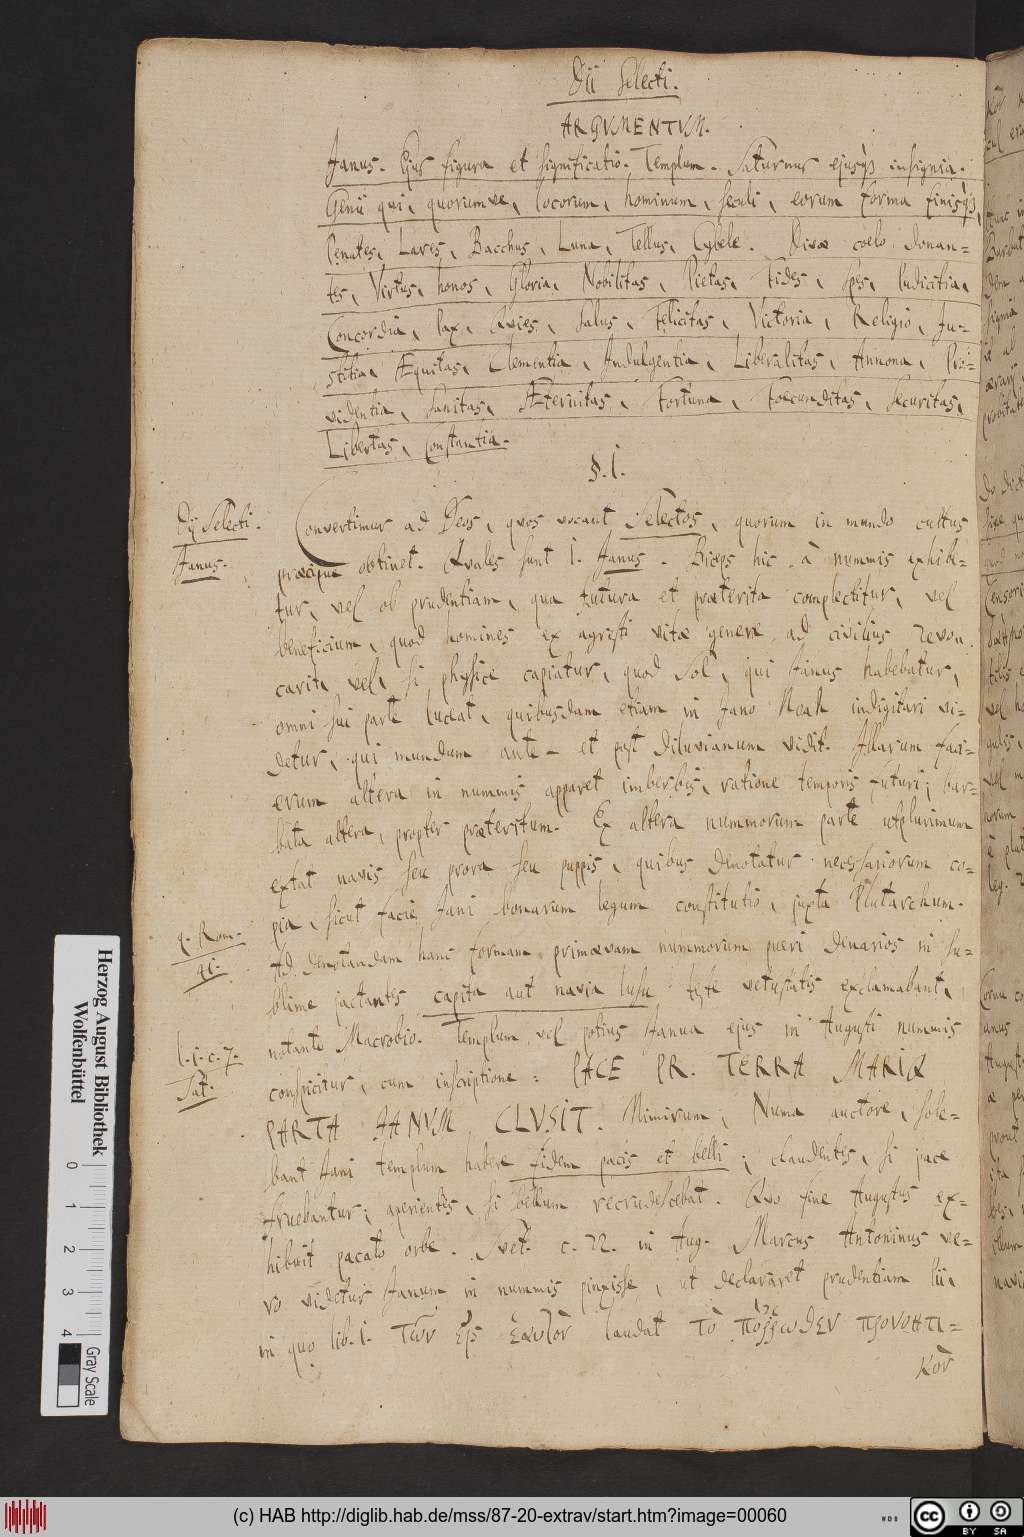 Dii Selecti.
ARGVMENTVM.
Janus. Ejus figura et significatio. Templum. Saturnus ejusqꝫ insignia.
Genii qui, quorumve, locorum, hominum, seculi, eorum forma finisqꝫ,
Penates, Lares, Bacchus, Luna, Tellus, Cybele. Divæ coelo donan=
tes, Virtus, honos, Gloria, Nobilitas, Pietas, Fides, Spes, Pudicitia,
Concordia, Pax, Qvies, Salus, Felicitas, Victoria, Religio, Ju=
stitia, Æquitas, Clementia, Indulgentia, Liberalitas, Annona, Pro=
videntia, Sanitas, Æternitas, Fortuna, Foecunditas, Securitas,
Libertas, Constantia.
§. I.
Dij Selecti.
Janus.
Convertimur ad Deos, qvos vocant Selectos, quorum in mundo cultus
præcipue obtinet. Qvales sunt 1. Janus. Biceps hic à nummis exhibe=
tur, vel ob prudentiam, qua futura et præterita complectitur, vel
beneficium, quod homines ex agresti vitæ genere ad civilius revo
carit, vel, si physice capiatur, quod Sol, qui Janus habebatur,
omni sui parte luceat, quibusdam etiam in Jano Noah indigitari vi=
detur, qui mundum ante- et post diluvianum vidit. Illarum faci=
erum altera in nummis apparet imberbis, ratione temporis futuri; bar=
bata altera, propter præteritum. Ex altera nummorum parte utplurimum
extat navis seu prora seu puppis, quibus denotatur necessariorum co=
pia, sicut facie Jani bonarum legum constitutio, juxta Plutarchum.
q. Rom.
41.
Ad denotandam hanc formam primævam nummorum pueri denarios in su=
blime jactantes capita aut navia lusu teste vetustatis exclamabant,
l. 1. c. 7.
Sat.
notante Macrobio. Templum, vel potius Janua ejus in Augusti nummis
conspicitur, cum inscriptione: PACE PR. TERRA MARIQ
PARTA JANVM CLVSIT. Nimirum, Numa auctore, sole=
bant Jani templum habere fidem pacis et belli; claudentes, si pace
fruebantur; aperientes, si bellum recrudescebat. Qvo fine Augustus ex=
hibuit pacato orbe. Svet. c. 22. in Aug. Marcus Antoninus ve=
ro videtur Janum in nummis pinxisse, ut declararet prudentiam sui,
in quo lib. 1. τῶν εἰς ἑαυτὸν laudat τὸ πόῤῥωθεν προνοητι=
κὸν
Herzog August Bibliothek
Wolfenbüttel
0 1 2 3 4
Gray Scale
(c) HAB http://diglib.hab.de/mss/87-20-extrav/start.htm?image=00060
WDB
cc BY SA